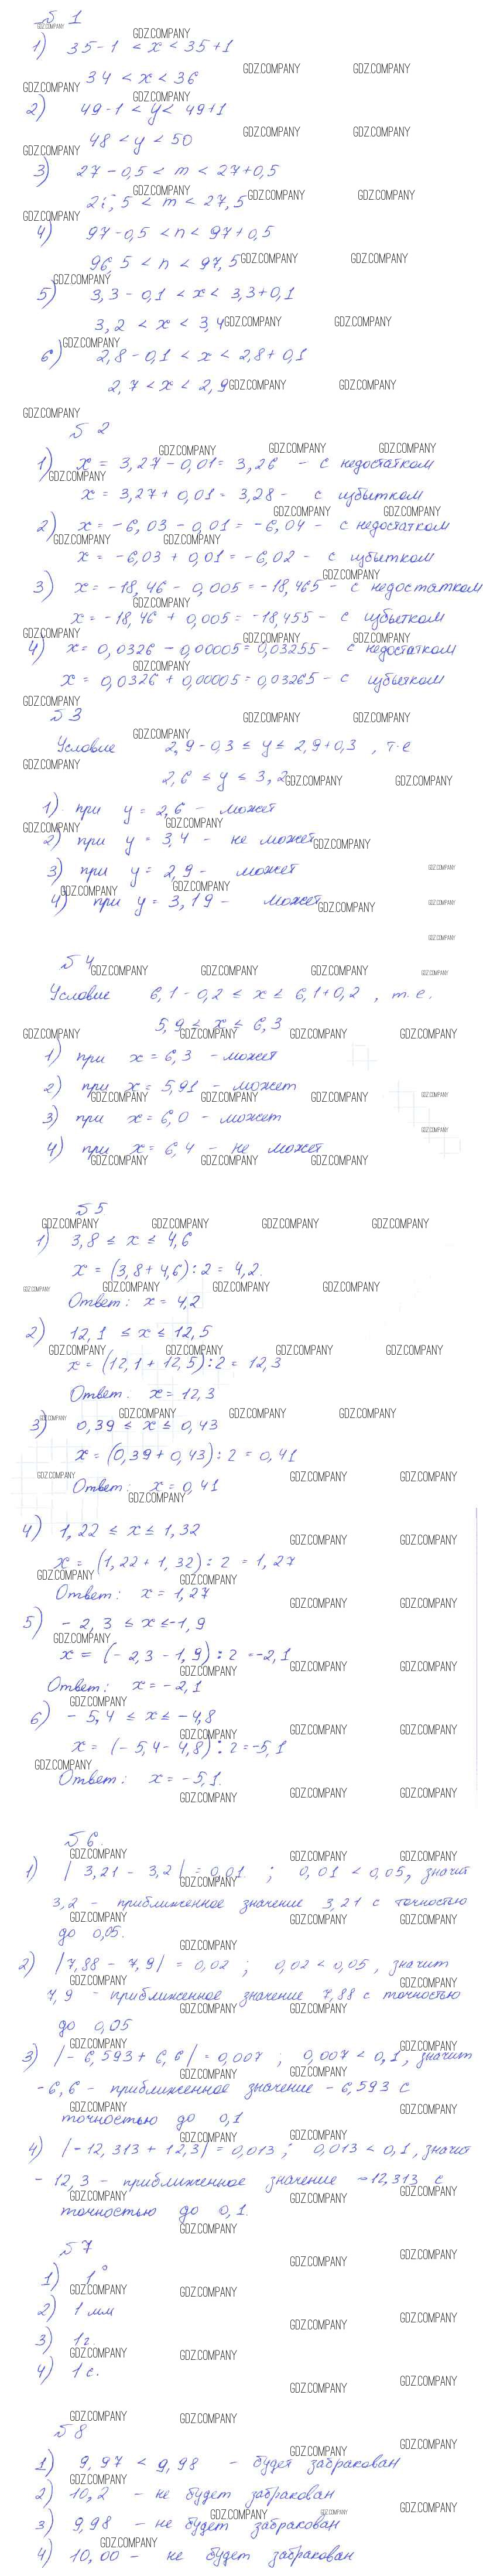 № 1
1) 35-1 < x < 35+1
34 < x < 36
2) 49-1 < y < 49+1
48 < y < 50
3) 27-0,5 < m < 27+0,5
26,5 < m < 27,5
4) 97-0,5 < n < 97+0,5
96,5 < n < 97,5
5) 3,3-0,1 < x < 3,3+0,1
3,2 < x < 3,4
6) 2,8-0,1 < x < 2,8+0,1
2,7 < x < 2,9
№ 2
1) x = 3,27-0,01 = 3,26 - с недостатком
x = 3,27+0,01 = 3,28 - с избытком
2) x = -6,03 - 0,01 = -6,04 - с недостатком
x = -6,03 + 0,01 = -6,02 - с избытком
3) x = -18,46 - 0,005 = -18,465 - с недостатком
x = -18,46 + 0,005 = -18,455 - с избытком
4) x = 0,0326 - 0,00005 = 0,03255 - с недостатком
x = 0,0326 + 0,00005 = 0,03265 - с избытком
№ 3
Условие 2,9-0,3 ≤ y ≤ 2,9+0,3, т.е
2,6 ≤ y ≤ 3,2
1) при y = 2,6 - может
2) при y = 3,4 - не может
3) при y = 2,9 - может
4) при y = 3,19 - может
№ 4
Условие 6,1-0,2 ≤ x ≤ 6,1+0,2, т.е.
5,9 ≤ x ≤ 6,3
1) при x = 6,3 - может
2) при x = 5,91 - может
3) при x = 6,0 - может
4) при x = 6,4 - не может
№ 5
1) 3,8 ≤ x ≤ 4,6
x = (3,8+4,6):2 = 4,2.
Ответ: x = 4,2
2) 12,1 ≤ x ≤ 12,5
x = (12,1+12,5):2 = 12,3
Ответ: x = 12,3
3) 0,39 ≤ x ≤ 0,43
x = (0,39+0,43):2 = 0,41
Ответ: x = 0,41
4) 1,22 ≤ x ≤ 1,32
x = (1,22+1,32):2 = 1,27
Ответ: x = 1,27
5) -2,3 ≤ x ≤ -1,9
x = (-2,3-1,9):2 = -2,1
Ответ: x = -2,1
6) -5,4 ≤ x ≤ -4,8
x = (-5,4-4,8):2 = -5,1
Ответ: x = -5,1.
№ 6.
1) |3,21-3,2| = 0,01; 0,01 < 0,05, значит
3,2 - приближенное значение 3,21 с точностью
до 0,05.
2) |7,88-7,9| = 0,02; 0,02 < 0,05, значит
7,9 - приближенное значение 7,88 с точностью
до 0,05
3) |-6,593+6,6| = 0,007; 0,007 < 0,1, значит
-6,6 - приближенное значение -6,593 с
точностью до 0,1
4) |-12,313+12,3| = 0,013; 0,013 < 0,1, значит
-12,3 - приближенное значение -12,313 с
точностью до 0,1.
№ 7
1) 1°
2) 1 мм
3) 1г.
4) 1 с.
№ 8
1) 9,97 < 9,98 - будет забракован
2) 10,2 - не будет забракован
3) 9,98 - не будет забракован
4) 10,00 - не будет забракован
GDZ.COMPANY